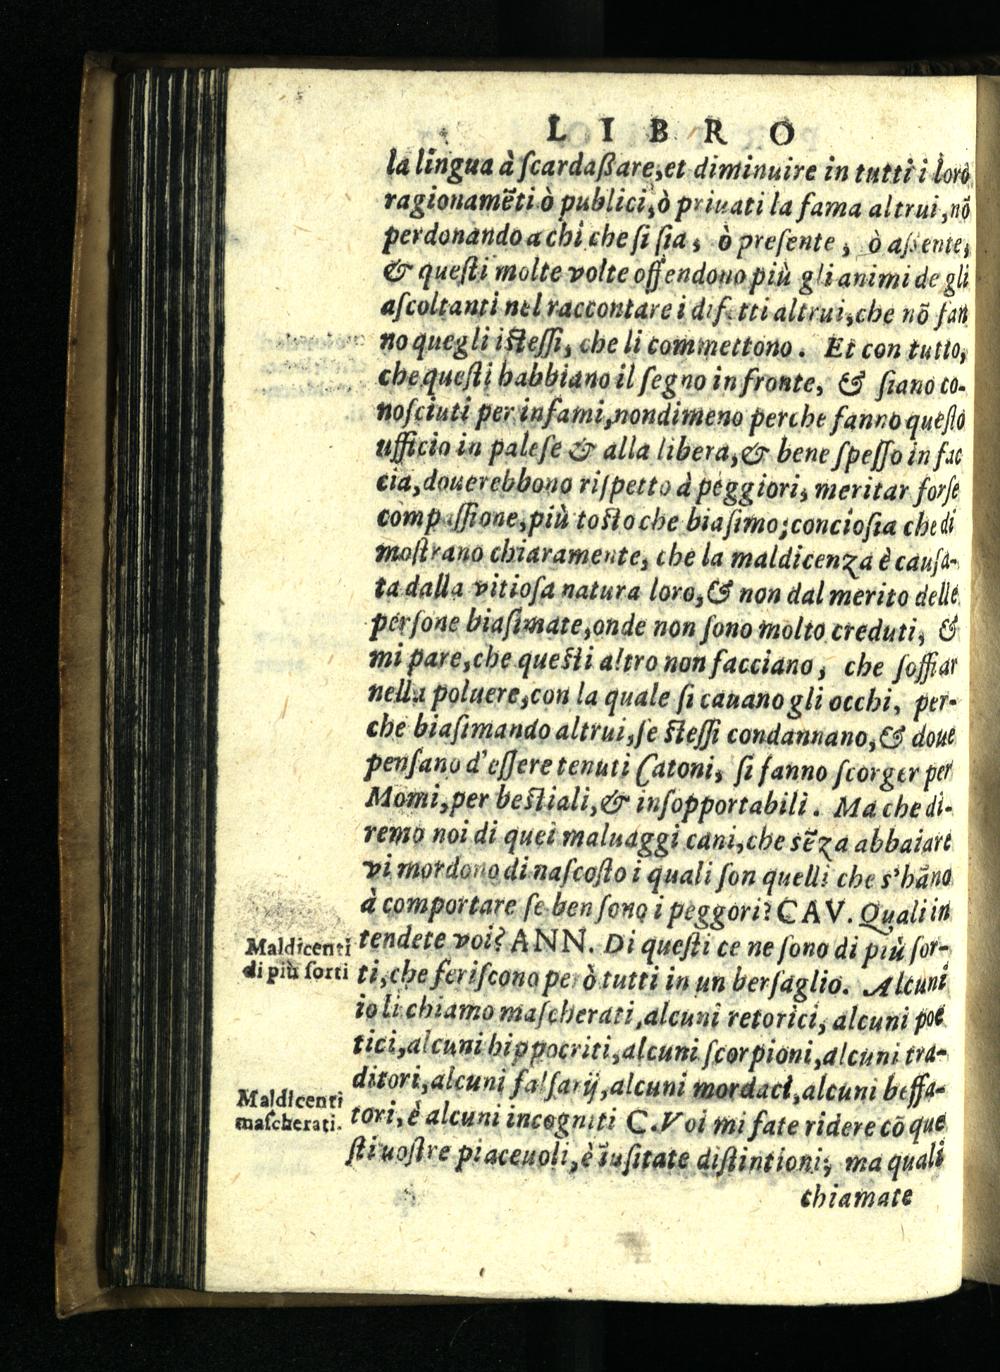 LIBRO
la lingua à ſcardaßare, et diminuire in tutti i loro
ragionamẽti ò publici, ò priuati la fama altrui, nõ
perdonando a chi che ſi ſia, ò preſente, ò aſſente,
& queſti molte volte offendono più gli animi de gli
aſcoltanti nel raccontare i difetti altrui, che nõ fan
no quegli iſteſſi, che li commettono. Et con tutto,
che queſti habbiano il ſegno in fronte, & ſiano co-
noſciuti per infami, nondimeno perche fanno queſto
ufficio in paleſe & alla libera, & bene ſpeſſo in fac
cia, douerebbono riſpetto à peggiori, meritar forſe
compaſſione, più toſto che biaſimo; concioſia che di
moſtrano chiaramente, che la maldicenza è cauſa-
ta dalla vitioſa natura loro, & non dal merito delle
perſone biaſimate, onde non ſono molto creduti, &
mi pare, che queſti altro non facciano, che ſoffiar
nella poluere, con la quale ſi cauano gli occhi, per-
che biaſimando altrui, ſe ſteſſi condannano, & doue
penſano d'eſſere tenuti Catoni, ſi fanno ſcorger per
Momi, per beſtiali, & inſopportabili. Ma che di-
remo noi di quei maluaggi cani, che sẽza abbaiare
vi mordono di naſcoſto i quali ſon quelli che s'hãno
à comportare ſe ben ſono i peggori? CAV. Quali in
tendete voi? ANN. Di queſti ce ne ſono di più ſor-
Maldicenti
di più ſorti
ti, che feriſcono però tutti in un berſaglio. Alcuni
io li chiamo maſcherati, alcuni retorici, alcuni poe
tici, alcuni hippocriti, alcuni ſcorpioni, alcuni tra-
ditori, alcuni falſarij, alcuni mordaci, alcuni beffa-
Maldicenti
maſcherati.
tori, è alcuni incogniti C. Voi mi fate ridere cõ que
ſti uoſtre piaceuoli, è ĩuſitate diſtintioni; ma quali
chiamate